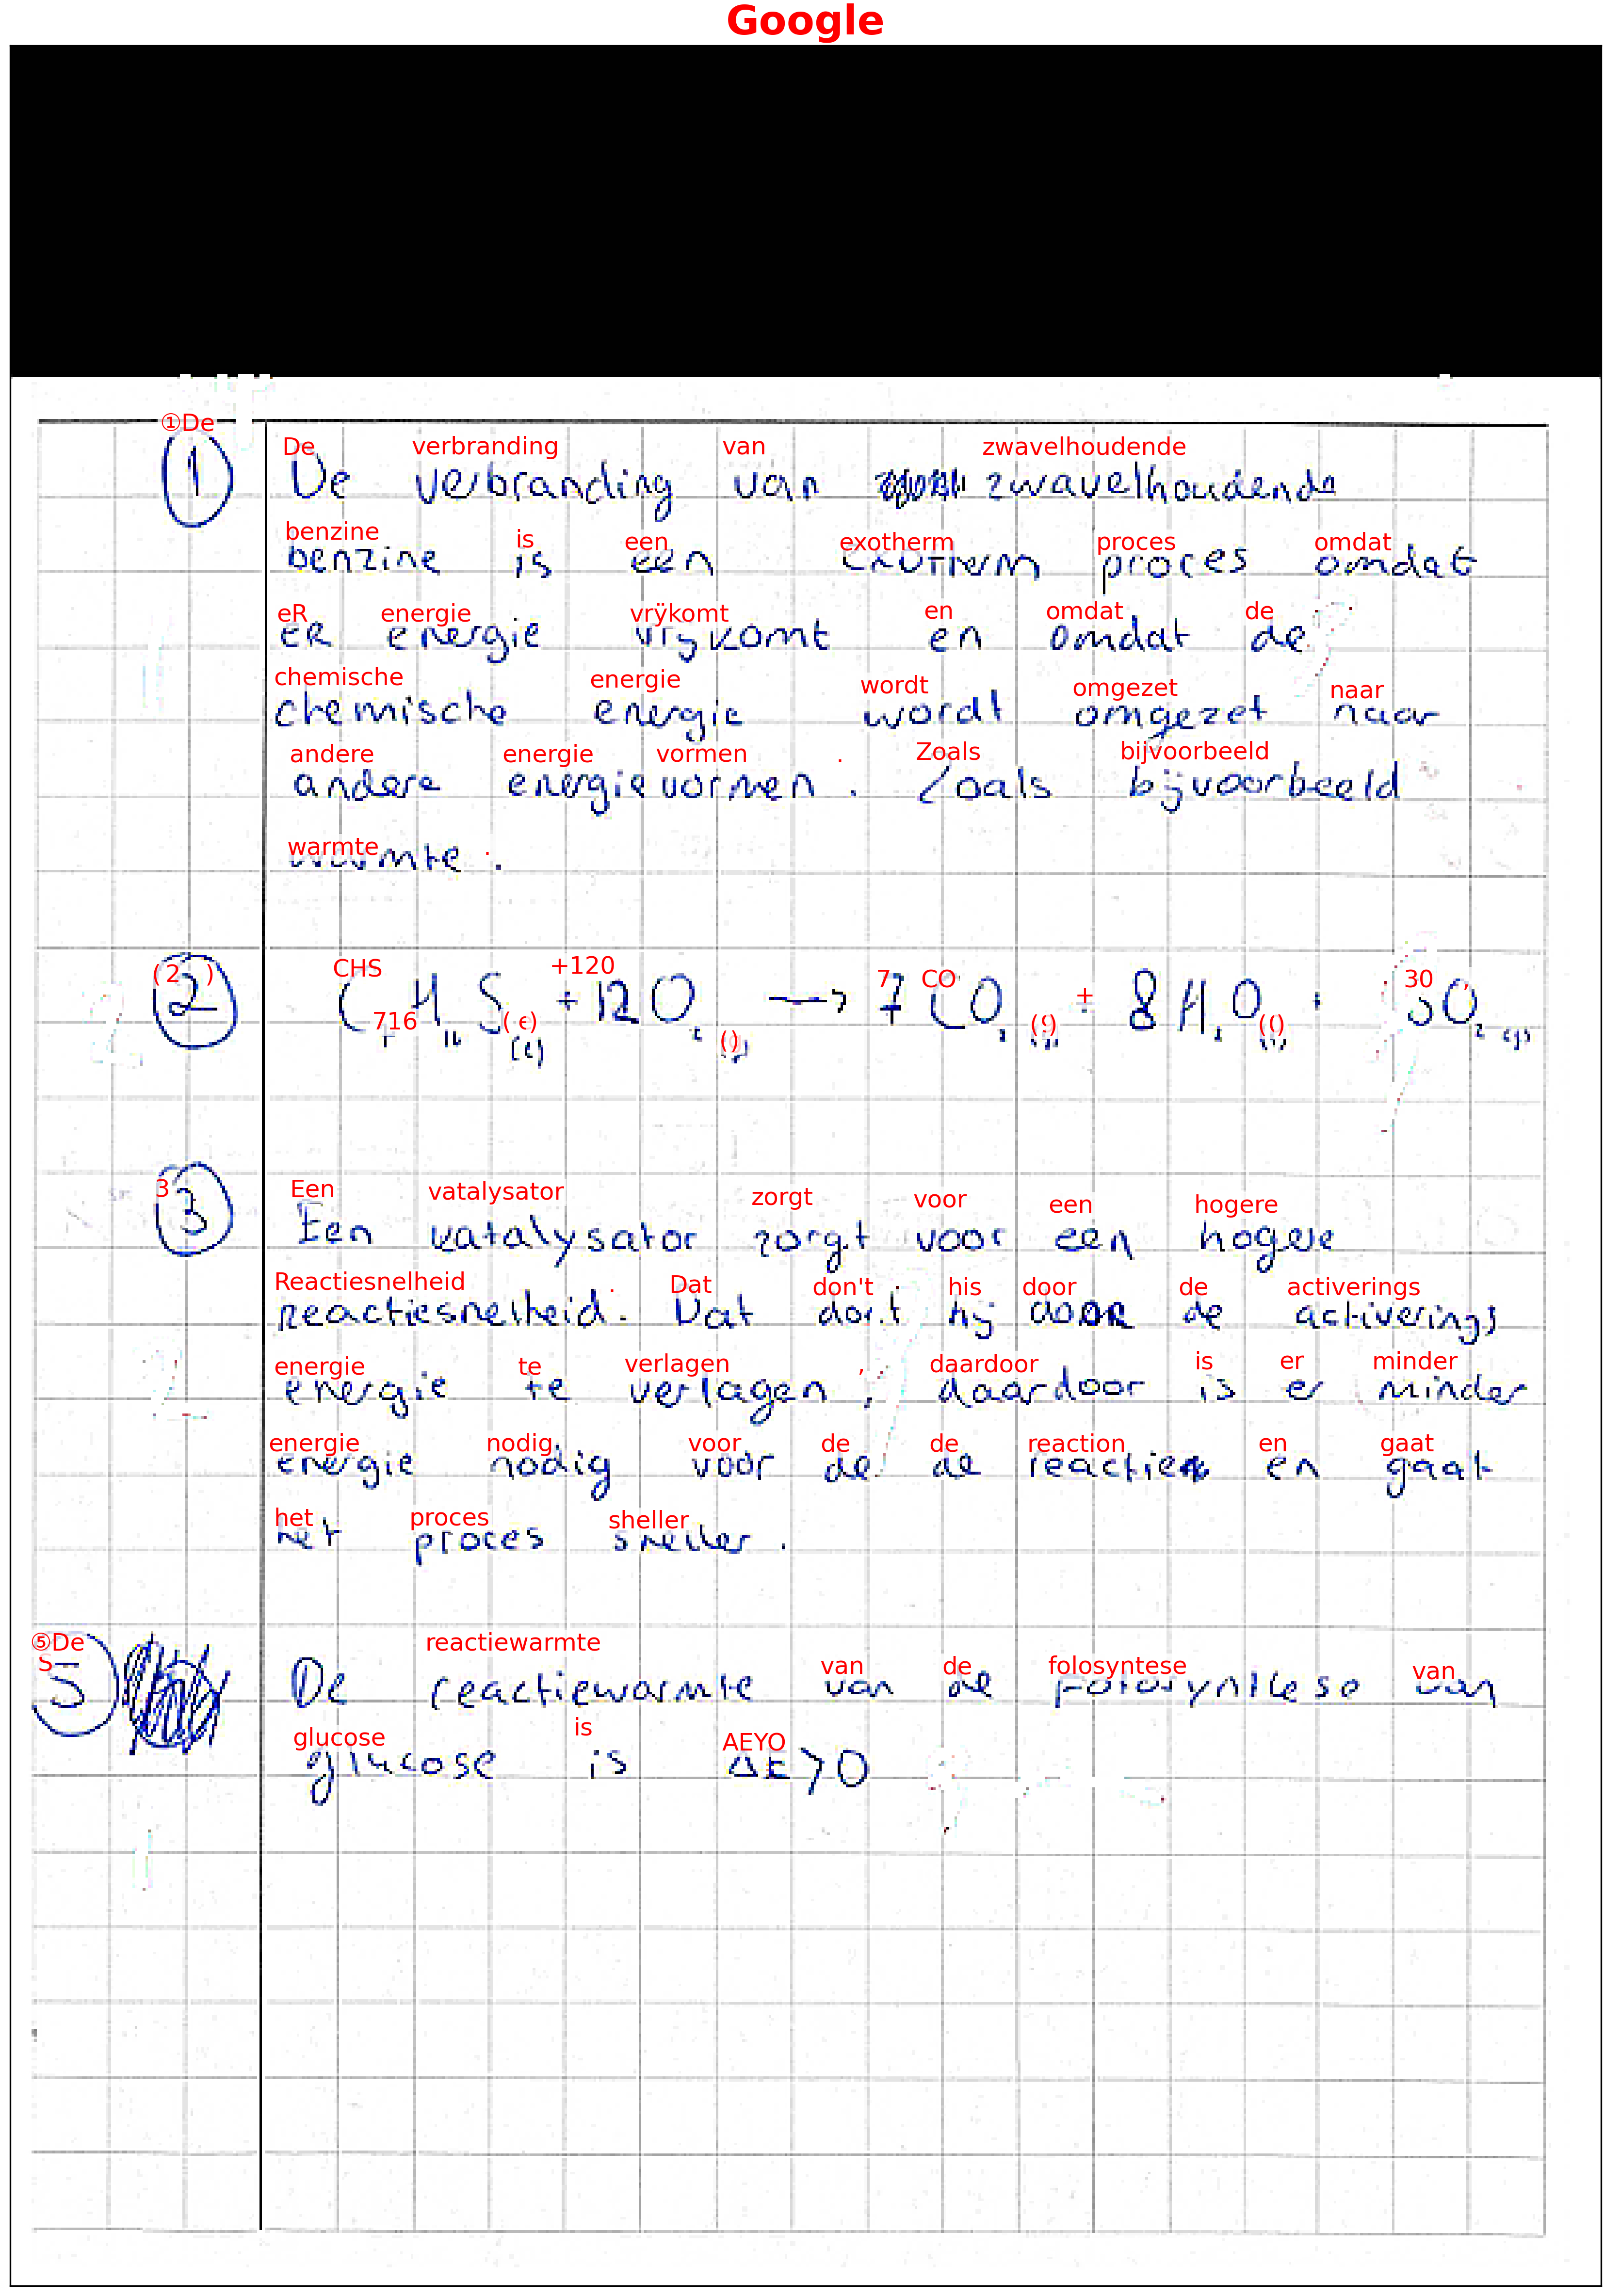 Google
①De
① De verbranding van zwavelhoudende
De verbranding van zwavelhoudende
benzine is een exotherm proces omdat
benzine is een exotherm proces omdat
eR energie vrÿkomt en omdat de
eR energie vrijkomt en omdat de
chemische energie wordt omgezet naar
chemische energie wordt omgezet naar
andere energie vormen . Zoals bijvoorbeeld
andere energievormen . Zoals bijvoorbeeld
warmte .
warmte .
( 2 ) CHS +120 7 CO + 30
② C₇H₁₆S(l) + 12O₂(g) → 7CO₂(g) + 8H₂O(l) + SO₂(g)
716 (ϵ) () (9) (()
3 Een vatalysator zorgt voor een hogere
③ Een katalysator zorgt voor een hogere
Reactiesnelheid . Dat don't his door de activerings
Reactiesnelheid . Dat doet hij dooR de activerings
energie te verlagen , daardoor is er minder
energie te verlagen , daardoor is er minder
energie nodig voor de de reaction en gaat
energie nodig voor de de reactie en gaat
het proces sheller
het proces sneller .
⑤De reactiewarmte van de folosyntese van
S
⑤ De reactiewarmte van de fotosyntese van
glucose is AEYO
glucose is ΔE>0